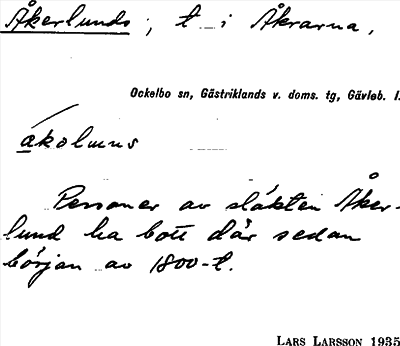 Åkerlunds ; t. i Åkrarna,
Ockelbo sn, Gästriklands v. doms. tg, Gävleb. l.
ákolmns
Personer av släkten Åker-
lund ha bott där sedan
början av 1800-t.
LARS LARSSON 1935